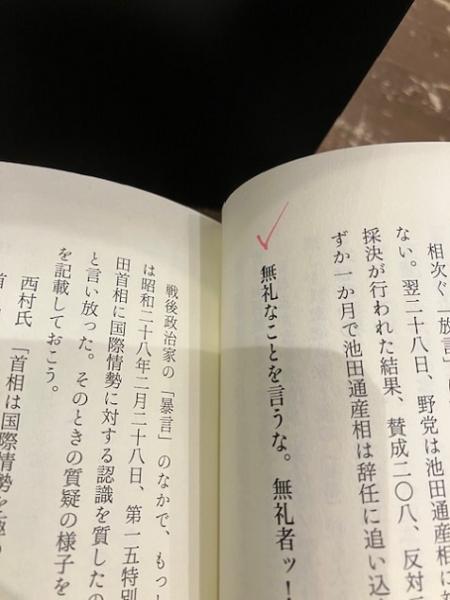 相次ぐ「放言」
ない。翌二十八日、野党は池田通産相に
採決が行われた結果、賛成二〇八、反対
ずか一か月で池田通産相は辞任に追い込
無礼なことを言うな。無礼者ッ！
戦後政治家の「暴言」のなかで、もっ
は昭和二十八年二月二十八日、第一五特別
田首相に国際情勢に対する認識を質したの
と言い放った。そのときの質疑の様子を
を記載しておこう。
西村氏「首相は国際情勢を
首